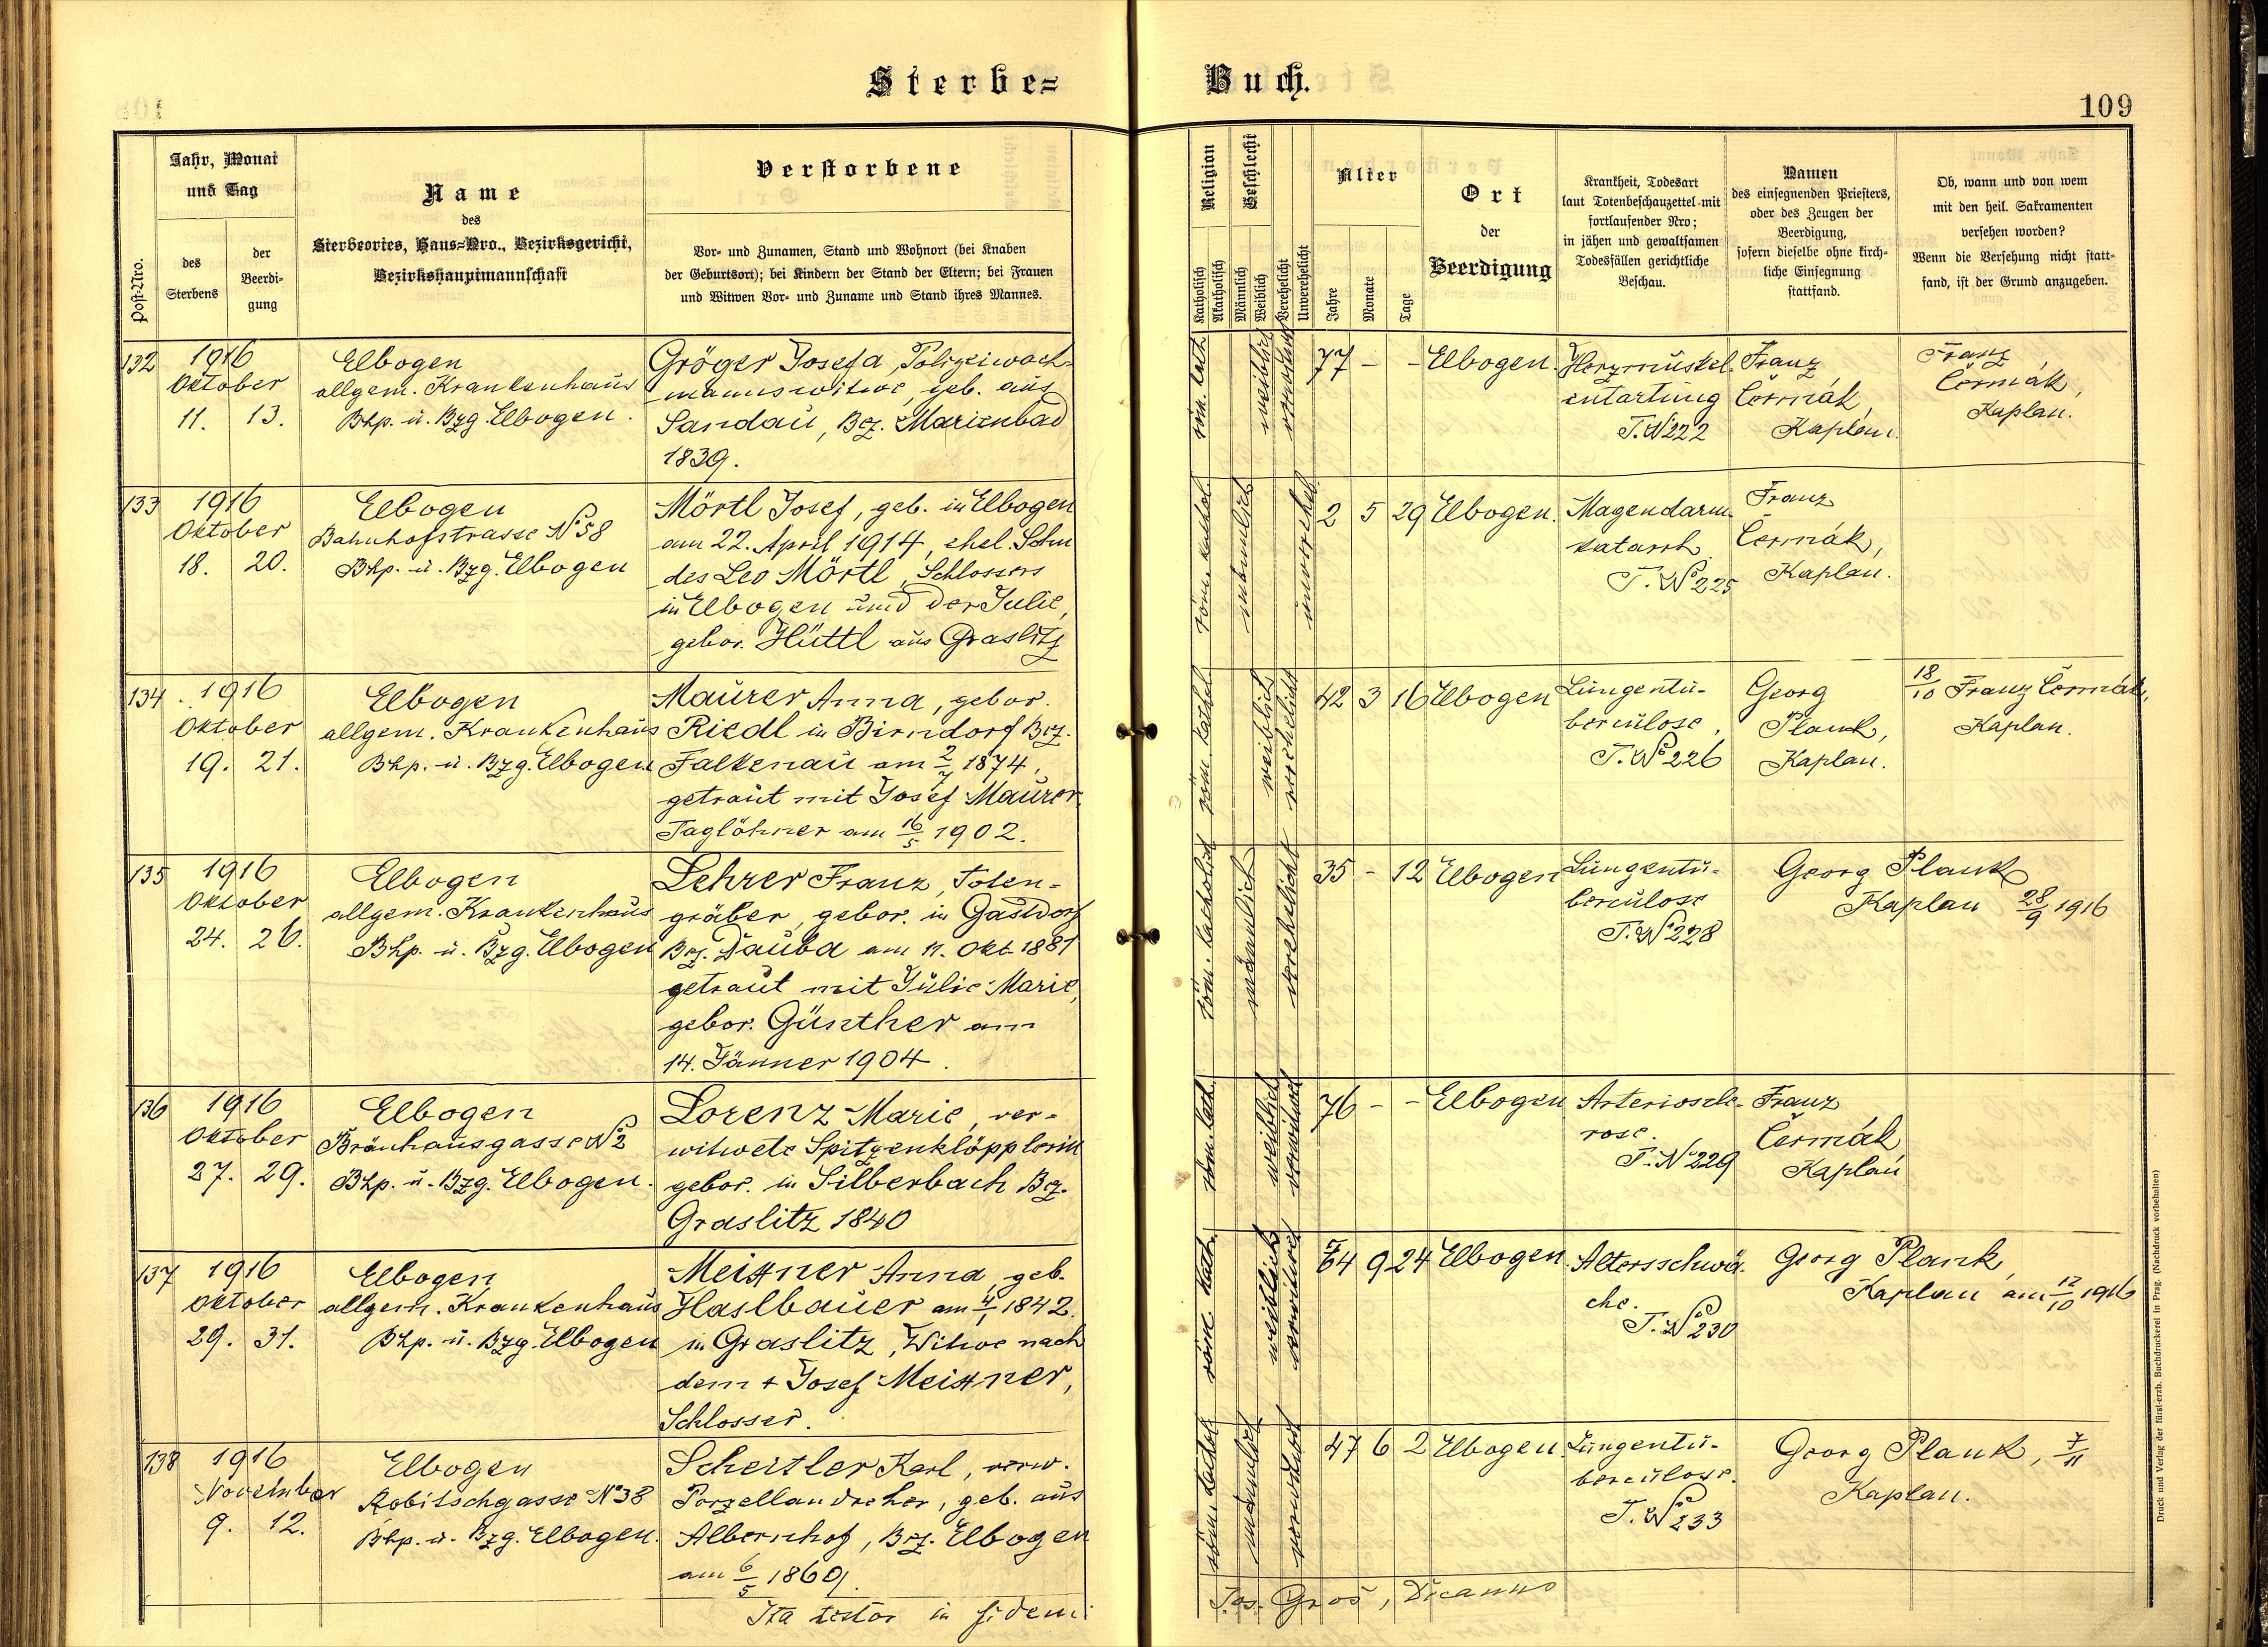 Sterbe=
Buch.
109
Post-Nro.
Jahr, Monat
und Tag
des
Sterbens
der
Beerdi-
gung
Name
des
Sterbeortes, Haus=Nro., Bezirksgericht,
Bezirkshauptmannschaft
Verstorbene
Vor- und Zunamen, Stand und Wohnort (bei Knaben
der Geburtsort); bei Kindern der Stand der Eltern; bei Frauen
und Witwen Vor- und Zuname und Stand ihres Mannes.
Religion
Katholisch
Akatholisch
Geschlecht
Männlich
Weiblich
Verehelicht
Unverehelicht
Alter
Jahre
Monate
Tage
Ort
der
Beerdigung
Krankheit, Todesart
laut Totenbeschauzettel mit
fortlaufender Nro;
in jähen und gewaltsamen
Todesfällen gerichtliche
Beschau.
Namen
des einsegnenden Priesters,
oder des Zeugen der
Beerdigung,
sofern dieselbe ohne kirch-
liche Einsegnung
stattfand.
Ob, wann und von wem
mit den heil. Sakramenten
versehen worden?
Wenn die Versehung nicht statt-
fand, ist der Grund anzugeben.
132
1916
Oktober
11. 13.
Elbogen
allgem. Krankenhaus
Bhp. u. Bzg. Elbogen.
Gröger Josefa, Polizeiwach-
mannswitwe, geb. aus
Sandau, Bez. Marienbad
1839.
röm. kath.
weiblich
verwitwet
77 - -
Elbogen.
Herzmuskel-
entartung
T. No 222
Franz
Čermák,
Kaplan.
Franz
Čermák,
Kaplan.
133
1916
Oktober
18. 20.
Elbogen
Bahnhofstrasse No 58
Bhp. u. Bzg. Elbogen
Mörtl Josef, geb. in Elbogen
am 22. April 1914, ehel. Sohn
des Leo Mörtl, Schlossers
in Elbogen und der Julie,
gebor. Hüttl aus Graslitz
röm. kathol.
männlich
unverehel.
2 5 29
Elbogen.
Magendarm-
katarrh.
T. No 225
Franz
Čermák,
Kaplan.
134
1916
Oktober
19. 21.
Elbogen
allgem. Krankenhaus
Bhp. u. Bzg. Elbogen
Maurer Anna, gebor.
Riedl in Birndorf Bez.
Falkenau am 2/7 1874,
getraut mit Josef Maurer
Taglöhner am 16/5 1902.
röm kathol.
weiblich
verehelicht
42 3 16
Elbogen
Lungentu-
berculose,
T. No 226
Georg
Plank,
Kaplan.
18/10 Franz Čermák,
Kaplan.
135
1916
Oktober
24. 26.
Elbogen
allgem. Krankenhaus
Bhp. u. Bzg. Elbogen
Lehrer Franz, Toten-
gräber, gebor. in Gastdorf
Bez. Dauba am 11. Okt. 1881
getraut mit Julie Marie,
gebor. Günther am
14. Jänner 1904.
röm. katholisch
männlich
verehelicht
35 - 12
Elbogen
Lungentu-
berculose
T. No 228
Georg Plank
Kaplan 28/9 1916
136
1916
Oktober
27. 29.
Elbogen
Bräuhausgasse No 2
Bhp. u. Bzg. Elbogen.
Lorenz Marie, ver-
witwete Spitzenklöpplerin
gebor. in Silberbach Bez.
Graslitz 1840
röm. kath.
weiblich
verwitwet
76 - -
Elbogen
Arterioskle-
rose.
T. No 229
Franz
Čermák
Kaplan
137
1916
Oktober
29. 31.
Elbogen
allgem. Krankenhaus
Bhp. u. Bzg. Elbogen
Meißner Anna, geb.
Haslbauer am 4/1 1842.
in Graslitz, Witwe nach
dem + Josef Meißner,
Schlosser.
röm. kath.
weiblich
verwitwet
74 9 24
Elbogen.
Altersschwä-
che.
T. No 230
Georg Plank,
Kaplan am 12/10 1916
138
1916
November
9. 12.
Elbogen
Robitschgasse No 38
Bhp. u. Bzg. Elbogen.
Scheitler Karl, verw.
Porzellandreher, geb. aus
Albernhof, Bez. Elbogen
am 6/5 1869.
röm. kathol.
männlich
verwitwet
47 6 2
Elbogen.
Lungentu-
berculose.
T. No 233
Georg Plank, 7/11
Kaplan.
Ita testor in fidem:
Jos. Groš, Decanus
Druck und Verlag der fürst-erzb. Buchdruckerei in Prag. (Nachdruck vorbehalten)